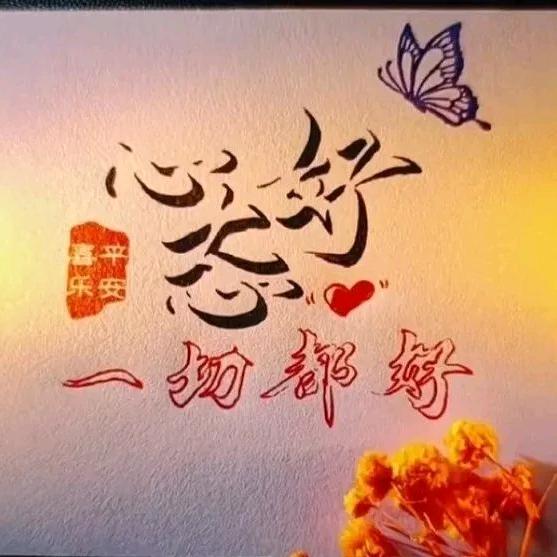 心态好
平安
喜乐
一切都好